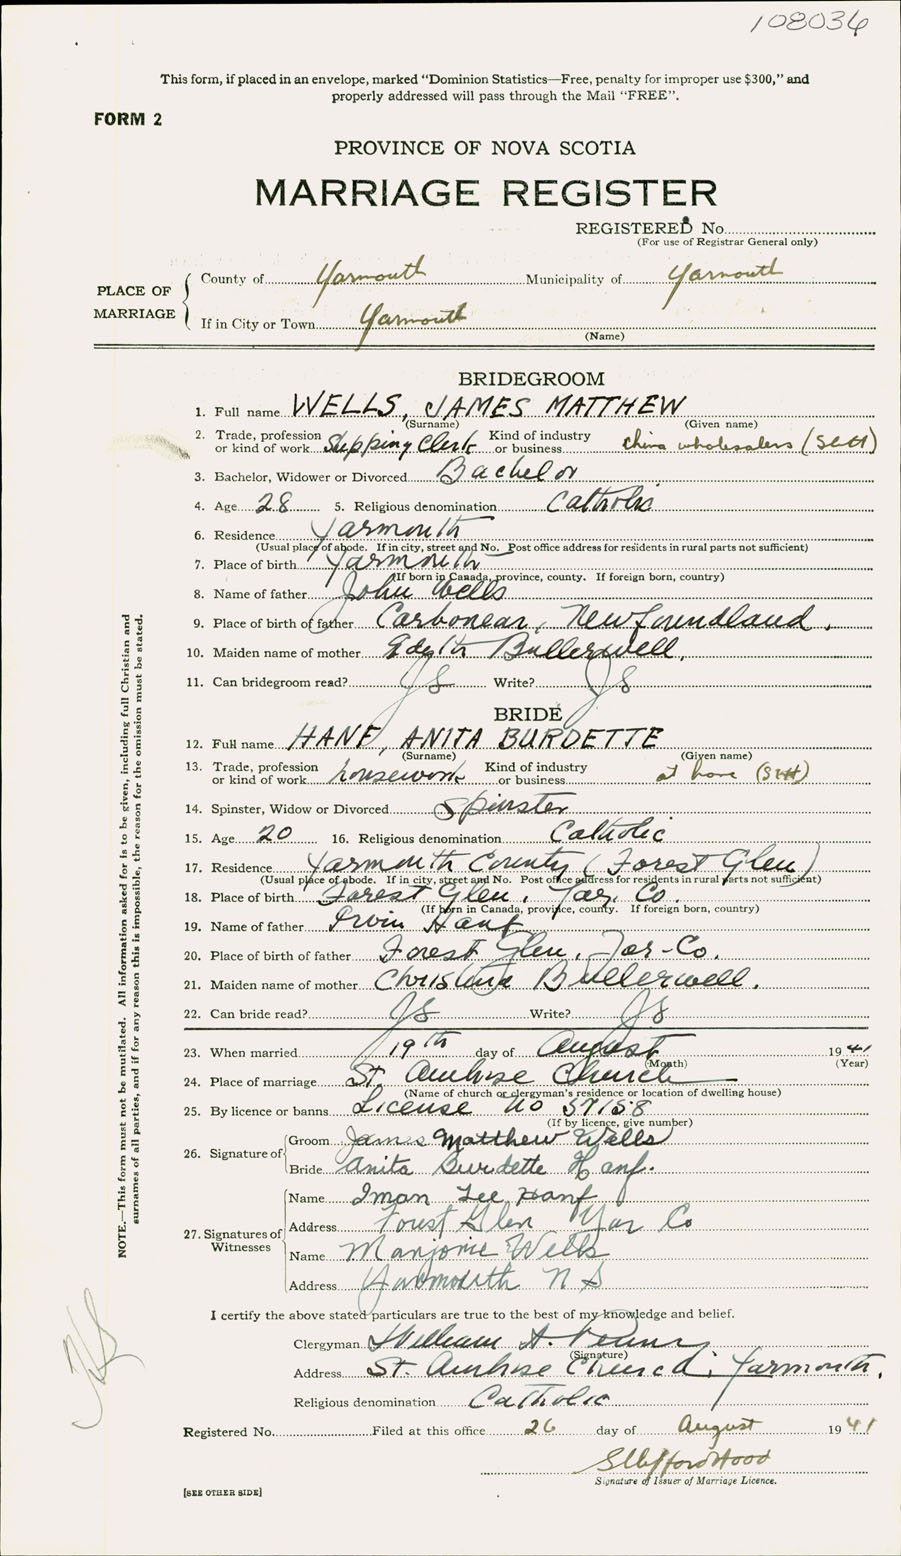 108034
This form, if placed in an envelope, marked “Dominion Statistics—Free, penalty for improper use $300,” and
properly addressed will pass through the Mail “FREE”.
FORM 2
PROVINCE OF NOVA SCOTIA
MARRIAGE REGISTER
REGISTERED No.
(For use of Registrar General only)
PLACE OF MARRIAGE
County of Yarmouth Municipality of Yarmouth
If in City or Town Yarmouth
(Name)
BRIDEGROOM
1. Full name WELLS, JAMES MATTHEW
(Surname) (Given name)
2. Trade, profession or kind of work Shipping Clerk Kind of industry or business china wholesalers
3. Bachelor, Widower or Divorced Bachelor
4. Age 28 5. Religious denomination Catholic
6. Residence Yarmouth
(Usual place of abode. If in city, street and No. Post office address for residents in rural parts not sufficient)
7. Place of birth Yarmouth
(If born in Canada, province, county. If foreign born, country)
8. Name of father John Wells
9. Place of birth of father Carbonear, Newfoundland.
10. Maiden name of mother Edyth Bullerwell.
11. Can bridegroom read? Write?
BRIDE
12. Full name HANF, ANITA BURDETTE
(Surname) (Given name)
13. Trade, profession or kind of work housework Kind of industry or business at home
14. Spinster, Widow or Divorced Spinster
15. Age 20 16. Religious denomination Catholic
17. Residence Yarmouth County (Forest Glen)
(Usual place of abode. If in city, street and No. Post office address for residents in rural parts not sufficient)
18. Place of birth Forest Glen, Yar. Co.
(If born in Canada, province, county. If foreign born, country)
19. Name of father Irvin Hanf
20. Place of birth of father Forest Glen, Yar-Co.
21. Maiden name of mother Christina Bullerwell.
22. Can bride read? Write?
23. When married 19th day of August 1941
(Month) (Year)
24. Place of marriage St. Ambrose Church
(Name of church or clergyman's residence or location of dwelling house)
25. By licence or banns License No 57158
(If by licence, give number)
26. Signature of
Groom James Matthew Wells
Bride Anita Burdette Hanf.
27. Signatures of Witnesses
Name Lee Hanf
Address Forest Glen Yar Co
Name Marjorie Wells
Address Yarmouth N S
I certify the above stated particulars are true to the best of my knowledge and belief.
Clergyman William A.
(Signature)
Address St. Ambrose Church, Yarmouth.
Religious denomination Catholic
Registered No. Filed at this office 26 day of August 1941
Signature of Issuer of Marriage Licence.
[SEE OTHER SIDE]
NOTE.—This form must not be mutilated. All information asked for is to be given, including full Christian and
surnames of all parties, and if for any reason this is impossible, the reason for the omission must be stated.